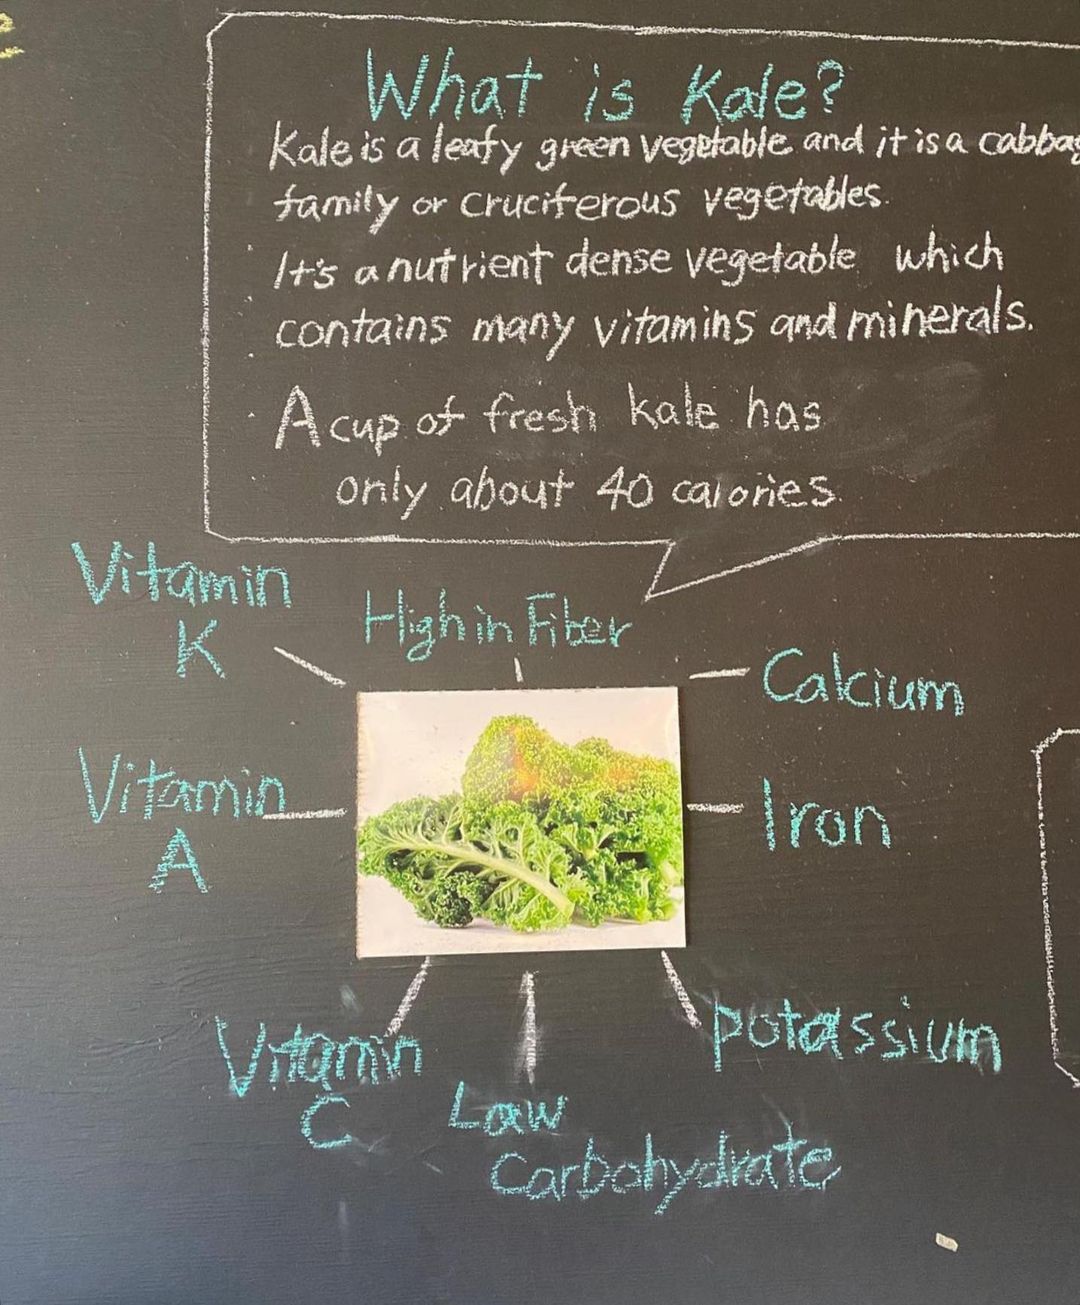 What is Kale?
Kale is a leafy green vegetable and it is a cabbag
family or cruciferous vegetables.
It's a nutrient dense vegetable which
contains many vitamins and minerals.
A cup of fresh kale has
only about 40 calories
Vitamin
K
High in Fiber
Calcium
Vitamin
A
Iron
Vitamin
C
Low
Carbohydrate
potassium